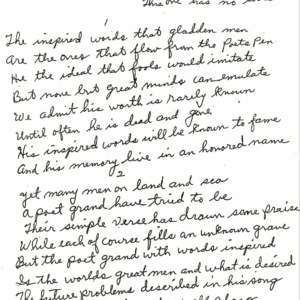 This one has no
The inspired words that gladden men
Are the ones that flow from the Poets Pen
He the ideal that fools would imitate
But none but great minds can emulate
We admit his worth is rarely known
Until often he is dead and gone
His inspired words will be known to fame
And his memory live in an honored name
2
yet many men on land and sea
A poet grand have tried to be
Their simple verse has drawn some praise
While each of course fills an unknown grave
But the poet grand with words inspired
Is the worlds great men and what is desired
The future problems described in his song